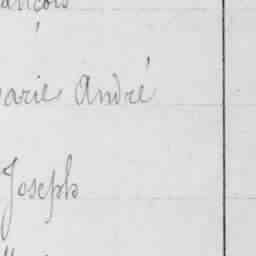 ançois
arie André
Joseph